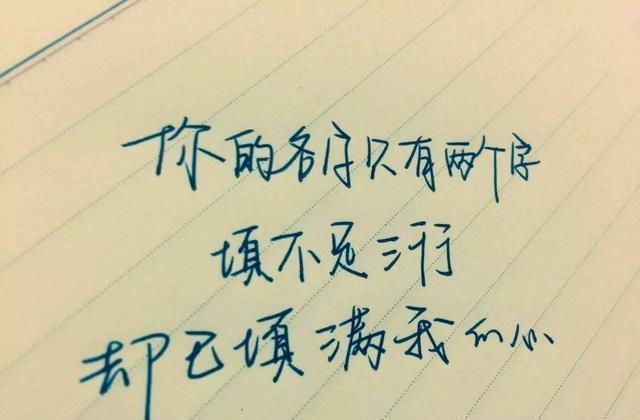 你的名字只有两个字
填不足三行
却已填满我的心